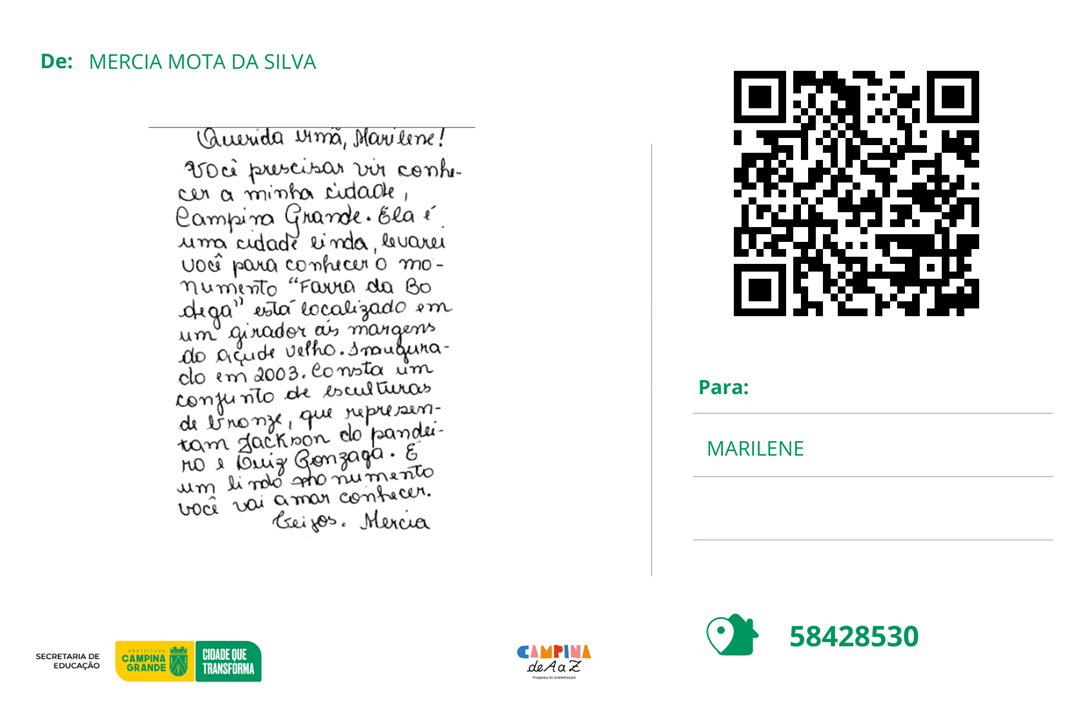 De: MERCIA MOTA DA SILVA
Querida irmã, Marilene!
Você prescisar vir conhe-
cer a minha cidade,
Campina Grande. Ela é
uma cidade linda, levarei
você para conhecer o mo-
numento "Farra da Bo
dega" está localizado em
um girador ás margens
do açude velho. Inaugura-
do em 2003. Consta um
conjunto de esculturas
de bronze, que represen-
tam Jackson do pandei-
ro e Luiz Gonzaga. É
um lindo monumento
você vai amar conhecer.
beijos. Mercia
Para:
MARILENE
58428530
SECRETARIA DE
EDUCAÇÃO
PREFEITURA
CAMPINA
GRANDE
CIDADE QUE
TRANSFORMA
CAMPINA
de A a Z
Programa de Alfabetização